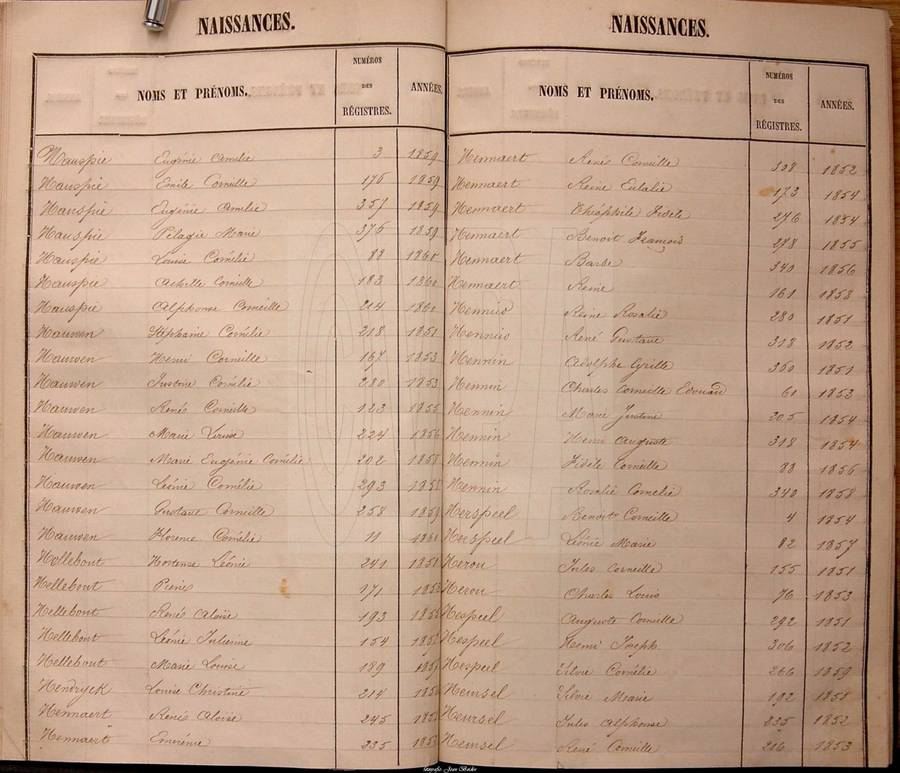 NAISSANCES.
NOMS ET PRÉNOMS. NUMÉROS DES RÉGISTRES. ANNÉES.
Hauspie Eugénie Camelie 3 1859
Hauspie Emile Corneille 176 1859
Hauspie Eugénie Camelie 357 1859
Hauspie Pelagie Marie 376 1859
Hauspie Louise Cornélie 88 1860
Hauspie Achille Corneille 183 1860
Hauspie Alphonse Corneille 214 1860
Hauwen Stéphanie Cornélie 218 1851
Hauwen Henri Corneille 167 1853
Hauwen Justine Cornélie 280 1853
Hauwen Renés Corneille 123
Hauwen Marie 224
Hauwen Marie Eugénie Cornélie 202
Hauwen Léonie Cornélie 293
Hauwen Gustave Corneille 258
Hauwen Florence Cornélie 11
Hellebout Hortense Léonie 241
Hellebout 171
Hellebout Renés Aloïse 193
Hellebout Léonie Julienne 154
Hellebout Marie Louise 189
Hendryck Louise Christine 214
Hennaert Renés Aloïse 245
Hennaert 235
NAISSANCES.
NOMS ET PRÉNOMS. NUMÉROS DES RÉGISTRES. ANNÉES.
Hennaert Renés Corneille 308 1852
Hennaert Reine Eulalie 173 1854
Hennaert Théophile Fidèle 276 1854
Hennaert Benoit François 278 1855
Hennaert Barbe 340 1856
Hennaert Reine 161 1858
Hennius Reine Rosalie 280 1851
Hennius René Gustave 318 1852
Hennin Adolphe Cyrille 360 1851
Hennin Charles Corneille Edouard 61 1853
Hennin Marie Justine 205 1854
Hennin Henri Auguste 318 1854
Hennin Fidèle Corneille 88 1856
Hennin Rosalie Cornelie 340 1858
Herspeel Benoit Corneille 4 1854
Herspeel Léonie Marie 82 1857
Herou Jules Corneille 155 1851
Herou Charles Louis 76 1853
Hespeel Auguste Corneille 292 1851
Hespeel Henri Joseph 306 1852
Hespeel Silvie Cornélie 266 1859
Heursel Silvie Marie 192 1851
Heursel Jules Alphonse 235 1852
Heursel René Corneille 216 1853